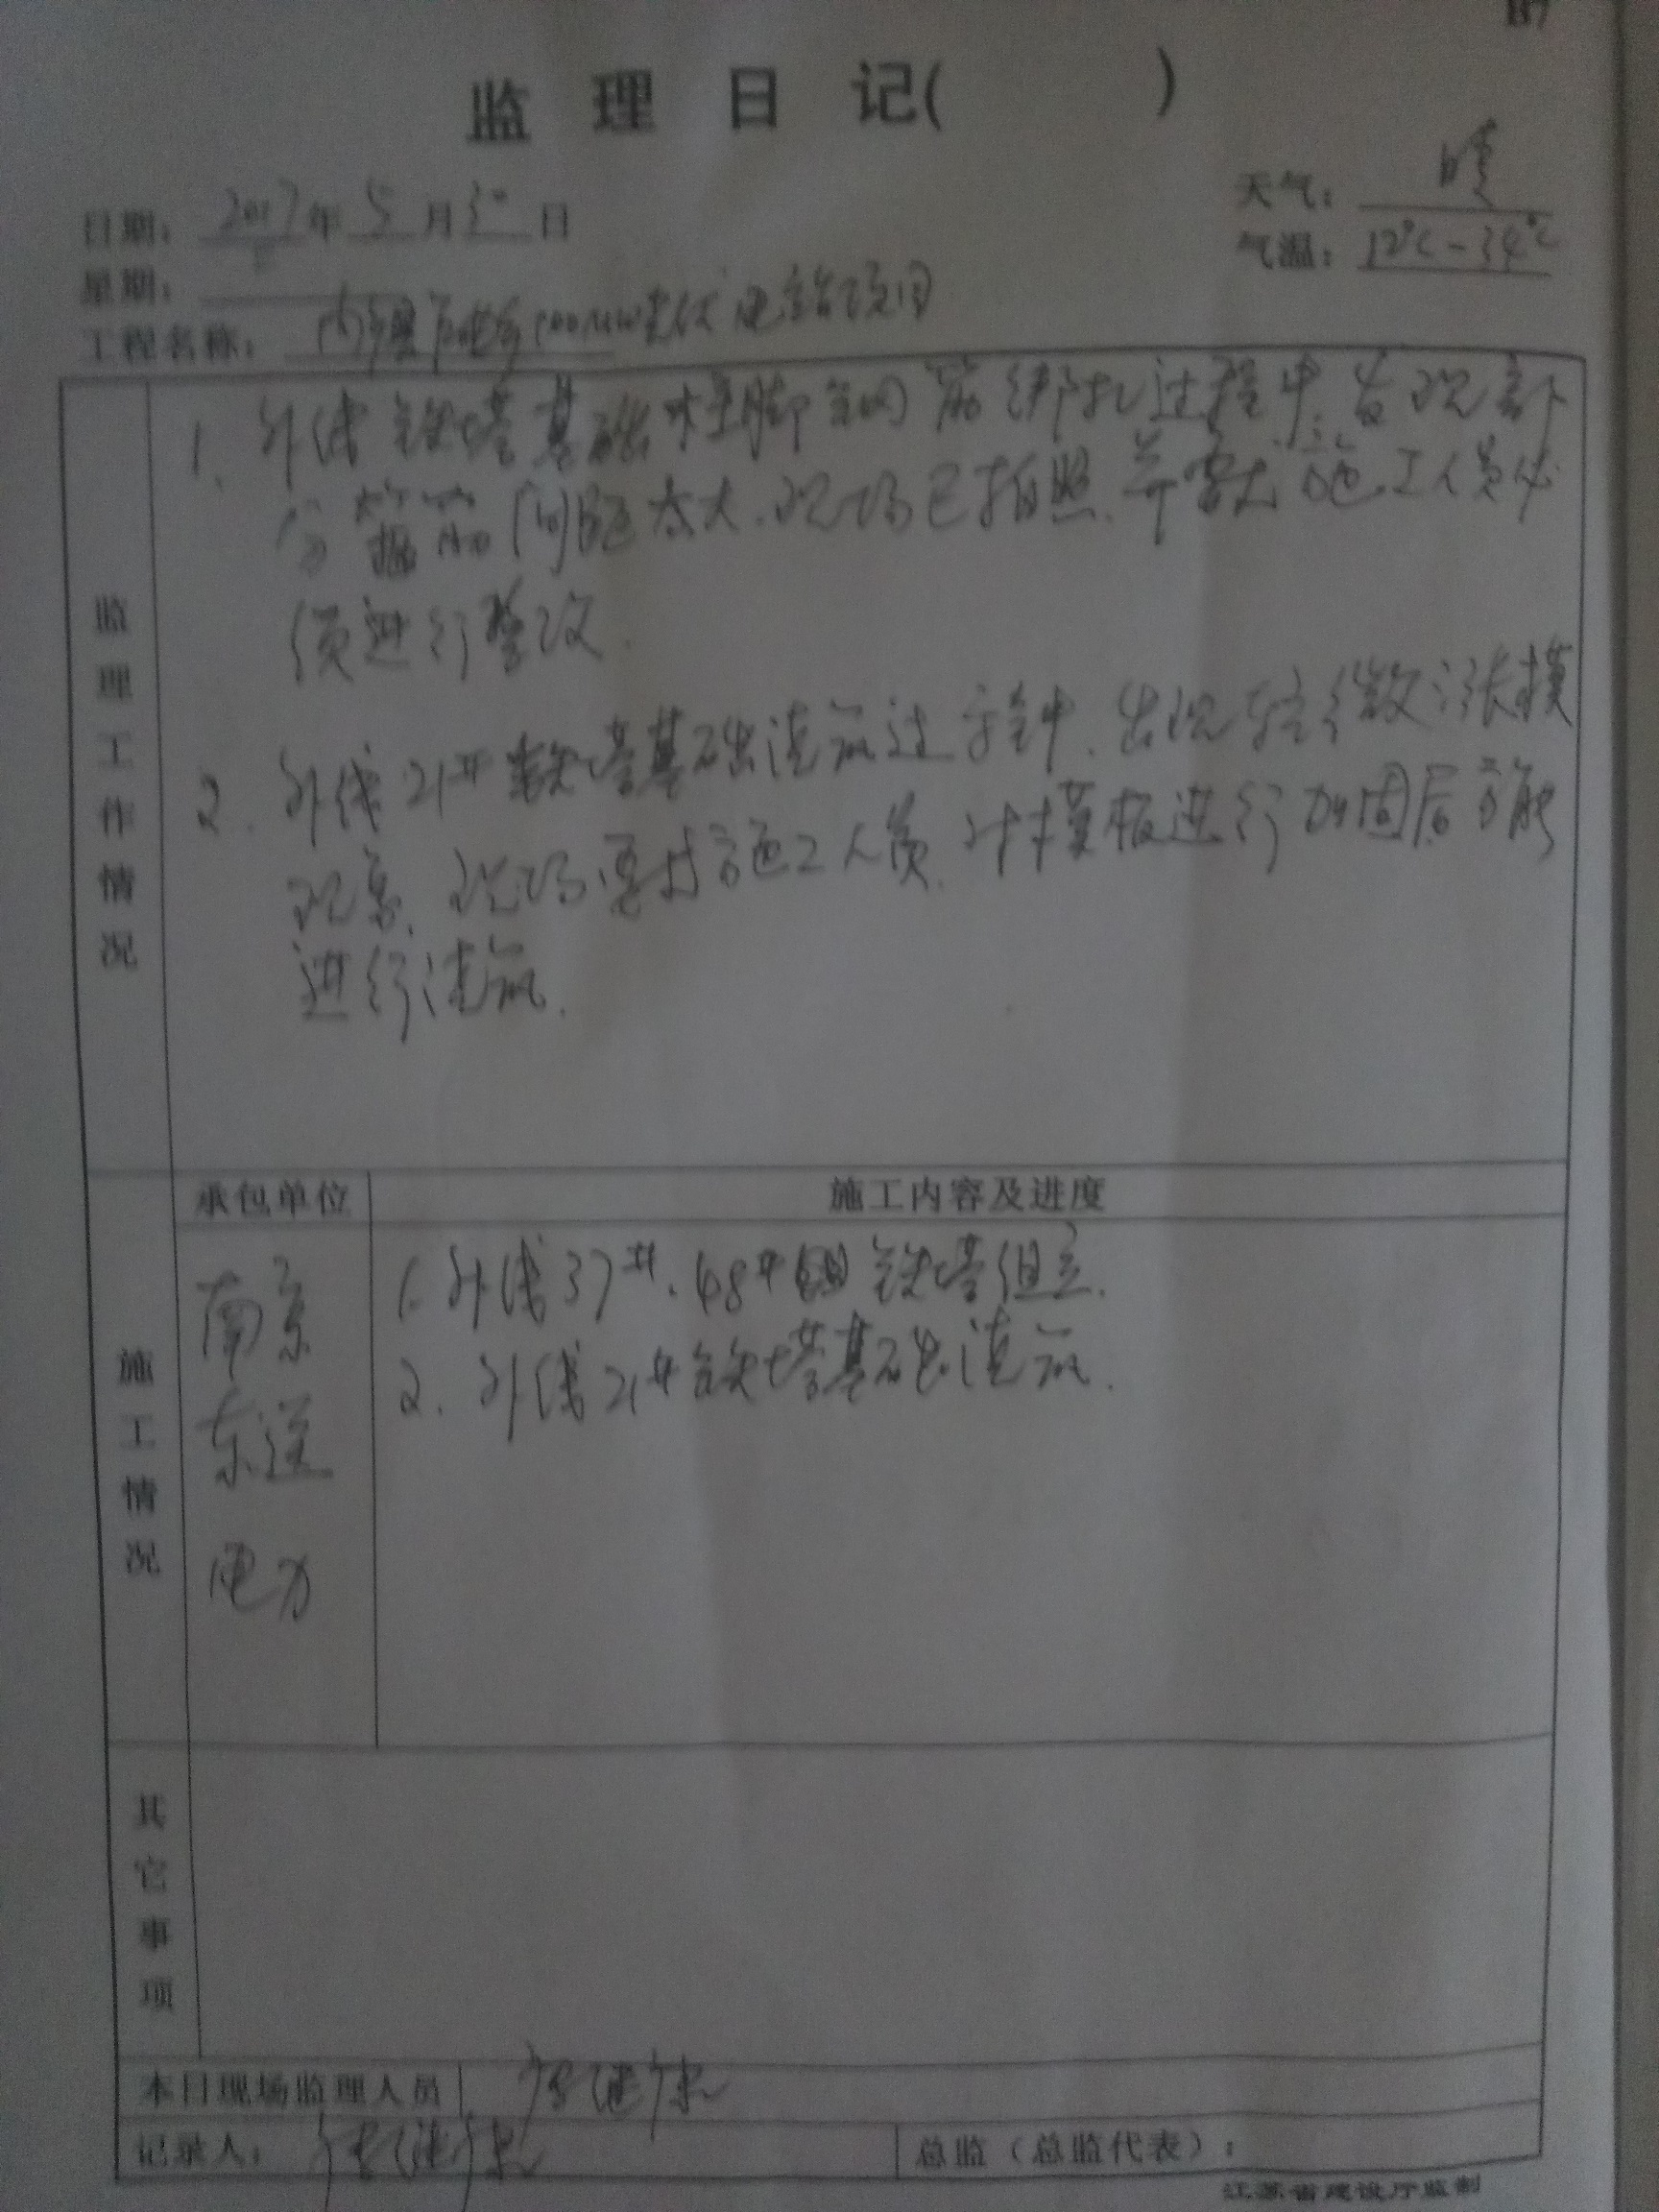 监理日记( )
日期: 2017年 5 月 30 日
天气: 晴
星期:
气温: 12℃-34℃
工程名称: 100MW光伏电站项目
监理工作情况
1. 外线铁塔基础柱脚钢筋绑扎过程中,发现部
分箍筋间距太大,现场已拍照,并要求施工人员必
须进行整改.
2. 外线21#铁塔基础浇筑过程中,出现轻微涨模
现象,现场要求施工人员,对模板进行加固后方能
进行浇筑.
承包单位
施工内容及进度
施工情况
南京
东送
电力
1. 外线37#、48#铁塔组立.
2. 外线21#铁塔基础浇筑.
其它事项
本日现场监理人员
记录人:
总监(总监代表):
江苏省建设厅监制